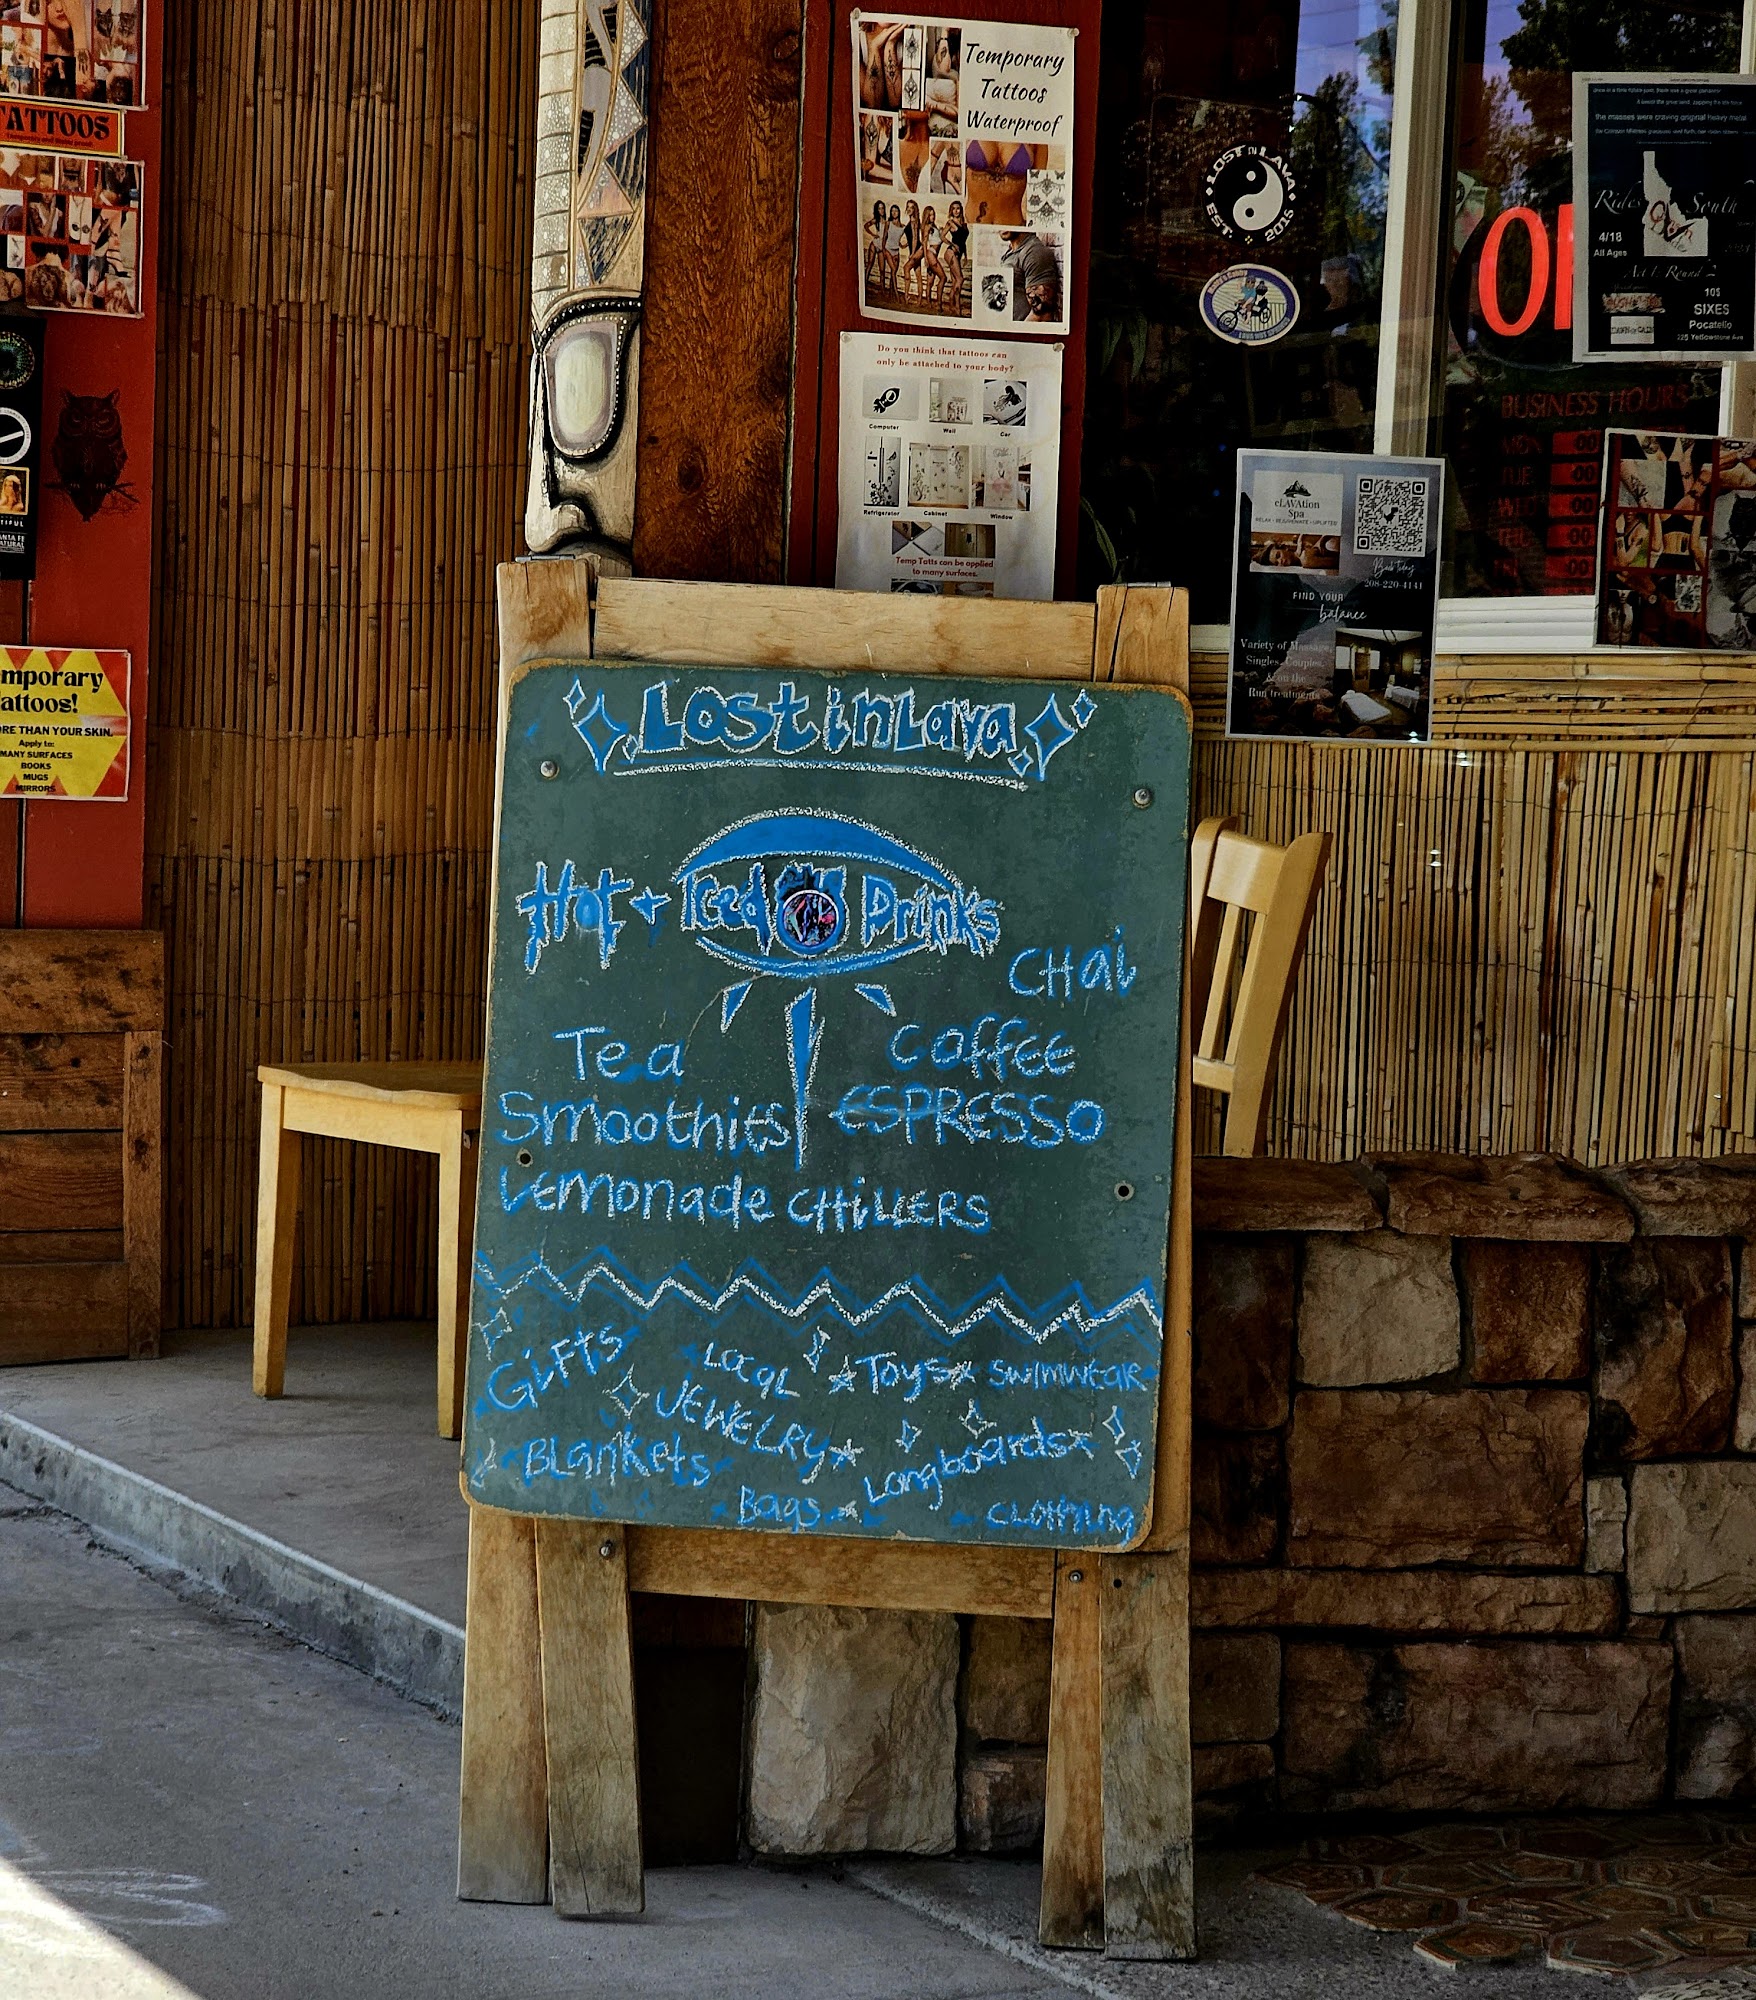 TATTOOS
Temporary
Tattoos
Waterproof
LOST IN LAVA
EST. 2015
the masses were craving original heavy metal
Rides South
4/18
All Ages
Act 1 Round 2
10$
SIXES
Pocatello
225 Yellowstone Ave
Do you think that tattoos can
only be attached to your body?
Computer
Wall
Car
Refrigerator
Cabinet
Window
Temp Tatts can be applied
to many surfaces.
BUSINESS HOURS
eLAVAtion
Spa
RELAX · REJUVENATE · UPLIFTED
Book today
208-220-4141
FIND YOUR
balance
Variety of Massage,
Singles, Couples,
& on the
Run treatments
mporary
attoos!
RE THAN YOUR SKIN.
Apply to:
MANY SURFACES
BOOKS
MUGS
MIRRORS
Lost in Lava
Hot + Iced Drinks
CHai
Tea
Coffee
Smoothies
ESPRESSO
Lemonade CHiLLERS
Gifts
Local
Toys
Swimwear
Jewelry
Blankets
Longboards
Bags
Clothing